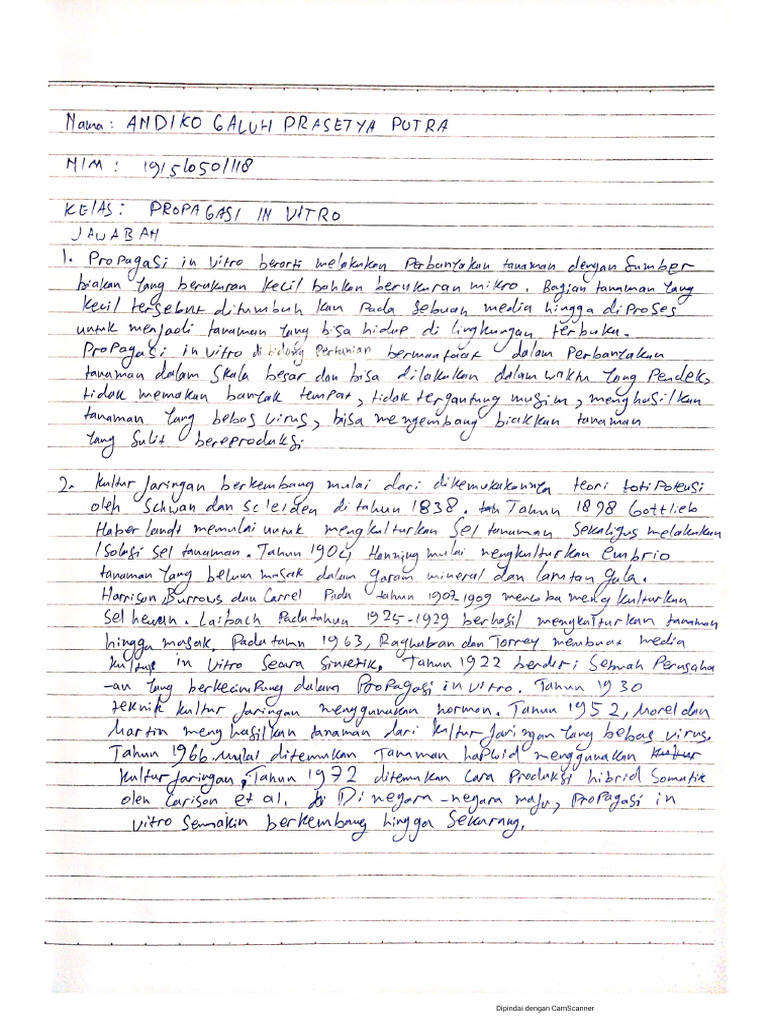 Nama : ANDIKO GALUH PRASETYA PUTRA
NIM : 19151050/118
KElAS : PROPAGASI IN VITRO
JAWABAH
1. Propagasi in vitro berarti melakukan Perbanyakan tanaman dengan Sumber
biakan Yang berukuran kecil bahkan berukuran mikro. Bagian tanaman Yang
kecil tersebut ditumbuh kan Pada sebuah media hingga diProses
untuk menjadi tanaman Yang bisa hidup di lingkungan terbuka.
ProPagasi in vitro di bidang Pertanian bermanfaat dalam Perbanyakan
tanaman dalam Skala besar dan bisa dilakukan dalam waktu Yang Pendek,
tidak memakan banyak tempat, tidak tergantung musim, menghasilkan
tanaman Yang bebas virus, bisa mengembang biakkan tanaman
Yang Sulit bereproduksi
2. Kultur Jaringan berkembang mulai dari dikemukakannya teori totiPotensi
oleh Schwan dan scleiden di tahun 1838. Tahun 1898 Gottlieb
Haberlandt memulai untuk mengkulturkan Sel tanaman Sekaligus melakukan
Isolasi sel tanaman. Tahun 1904 Hanning mulai mengkulturkan embrio
tanaman Yang belum masak dalam garam mineral dan larutan gula.
Harrison Burrows dan Carrel Pada tahun 1907-1909 mencoba mengkulturkan
sel hewan. Laibach Pada tahun 1925-1929 berhasil mengkulturkan tanaman
hingga masak. Pada tahun 1963, Raghubran dan Torrey membuat media
kultur in vitro Secara Sintetik. Tahun 1922 berdiri Sebuah Perusaha
-an Yang berkecimpung dalam ProPagasi in vitro. Tahun 1930
teknik kultur Jaringan menggunakan hormon. Tahun 1952, Morel dan
Martin menghasilkan tanaman dari kultur Jaringan Yang bebas virus.
Tahun 1966 Mulai ditemukan Tanaman haploid menggunakan kultur
kultur Jaringan, Tahun 1972 ditemukan cara Produksi hibrid Somatik
oleh Carlson et al. Di negara-negara maju, ProPagasi in
vitro Semakin berkembang hingga Sekarang.
Dipindai dengan CamScanner